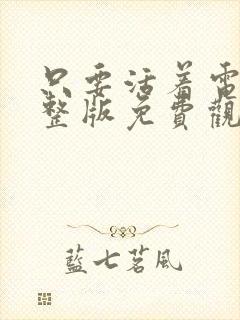 只要活着電
整版免費觀
藍七茗風